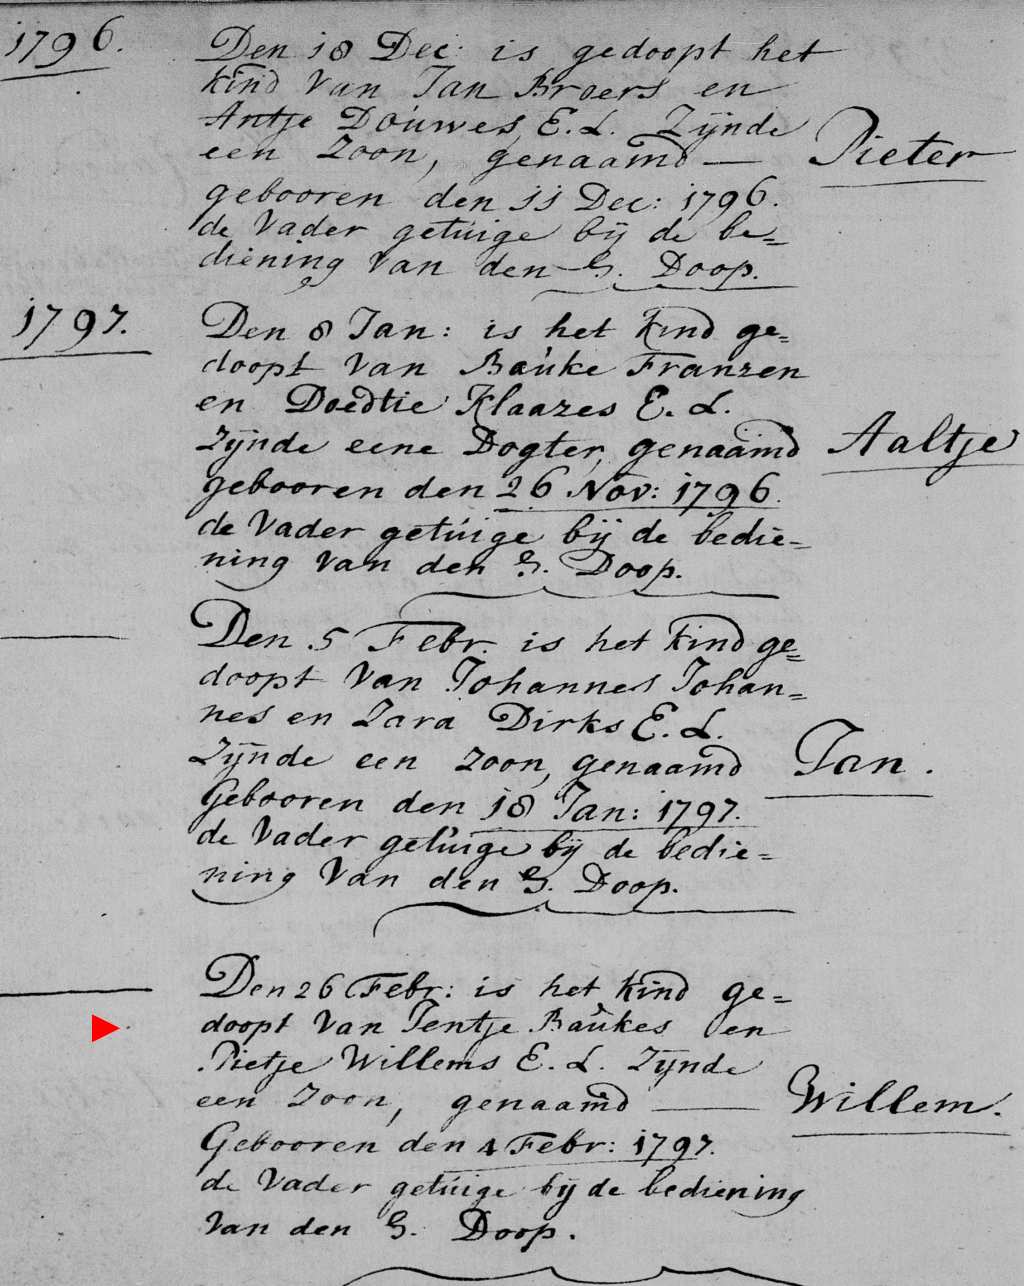 1796.
Den 18 Dec: is gedoopt het
kind van Jan Broers en
Antje Douwes, E. L. Zijnde
een Zoon, genaamd — Pieter
gebooren den 11 Dec: 1796.
de Vader getuige bij de be=
diening van den H. Doop.
1797.
Den 8 Jan: is het kind ge=
doopt van Bauke Franzen
en Doedtie Klaazes E. L.
Zijnde eene Dogter, genaamd Aaltje
gebooren den 26 Nov: 1796.
de Vader getuige bij de bedie=
ning van den H. Doop.
Den 5 Febr. is het kind ge=
doopt van Johannes Johan=
nes en Zara Dirks E. L.
Zijnde een Zoon, genaamd Jan.
Gebooren den 18 Jan: 1797.
de Vader getuige bij de bedie=
ning van den H. Doop.
Den 26 Febr: is het kind ge=
doopt van Jentje Baukes en
Pietje Willems E. L. Zijnde
een Zoon, genaamd — Willem.
Gebooren den 4 Febr: 1797.
de Vader getuige bij de bediening
van den H. Doop.